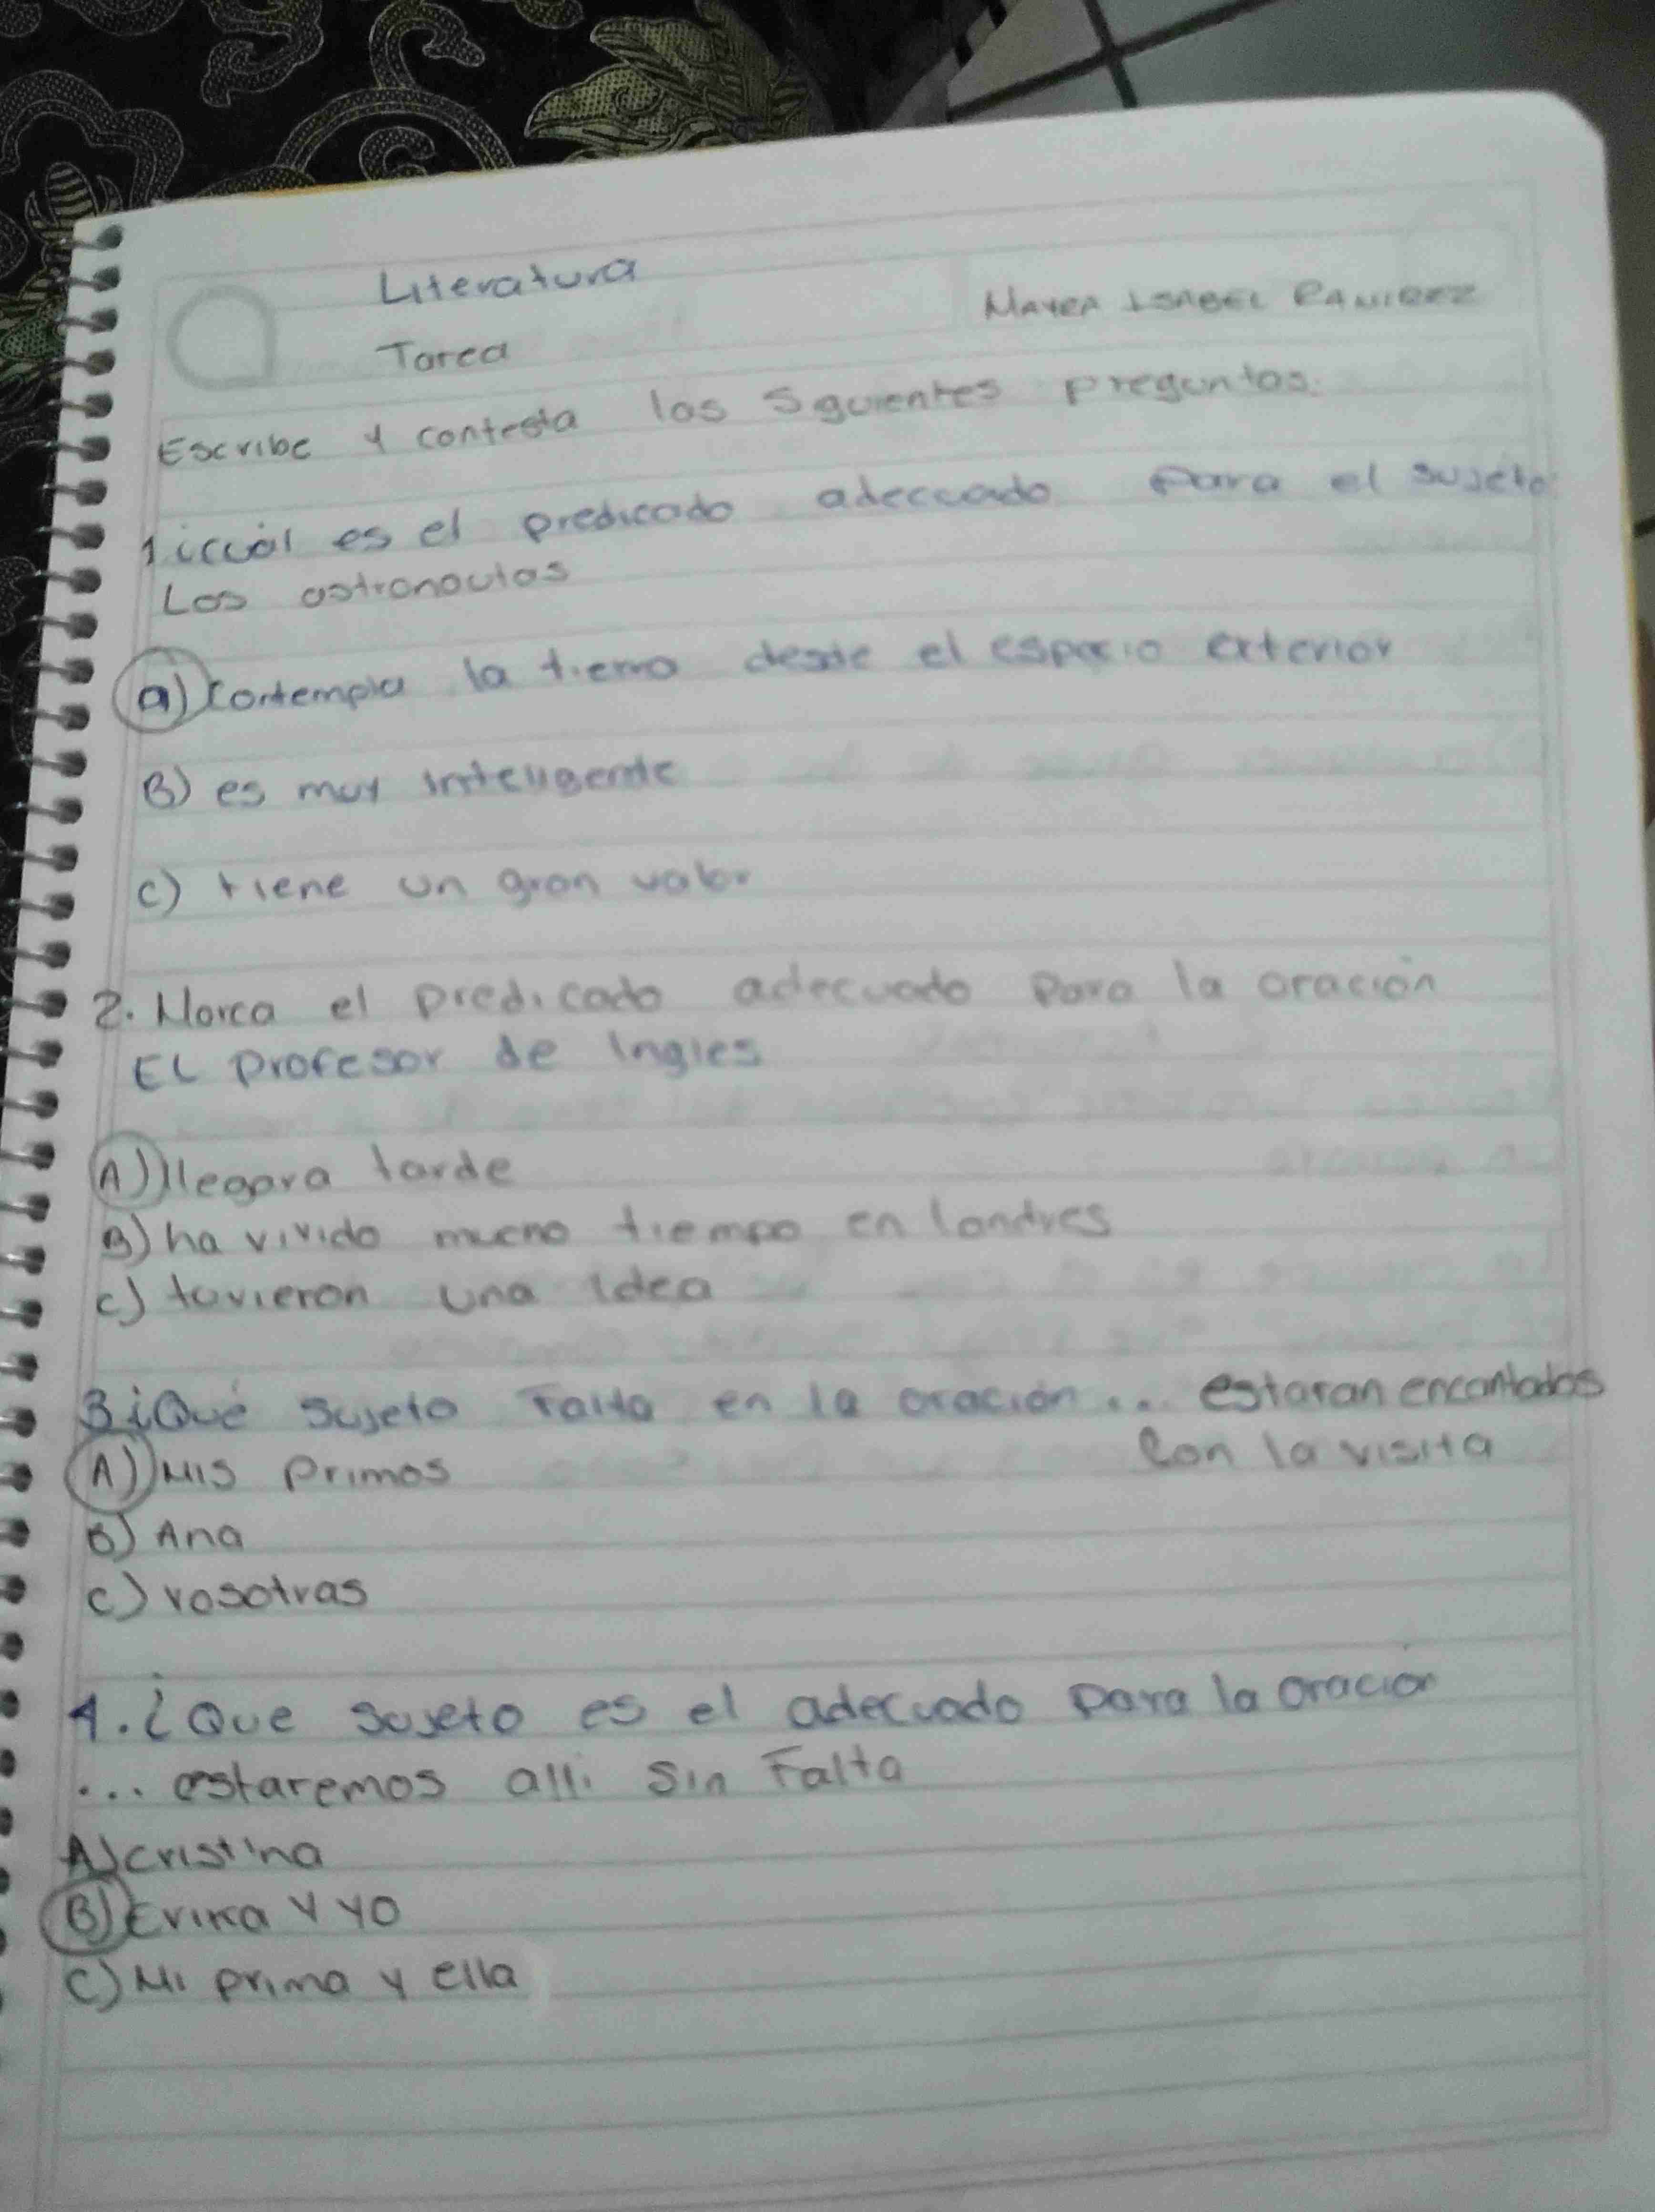 Literatura
MAYRA ISABEL RAMIREZ
Tarea
Escribe y contesta las Sguientes preguntas.
1 ¿cuál es el predicado adecuado para el sujeto
Los astronautas
a) Contempla la tierra desde el espacio exterior
B) es muy inteligente
C) tiene un gran valor
2. Marca el predicado adecuado para la oración
EL profesor de Ingles
A) llegara tarde
B) ha vivido mucho tiempo en londres
C) tuvieron una idea
3 ¿Qué sujeto Falta en la oración ... estaran encantados
Con la visita
A) MIS primos
B) Ana
C) vosotras
4. ¿Que sujeto es el adecuado para la oracion
... estaremos alli sin Falta
A) cristina
B) Erika y yo
C) Mi prima y ella